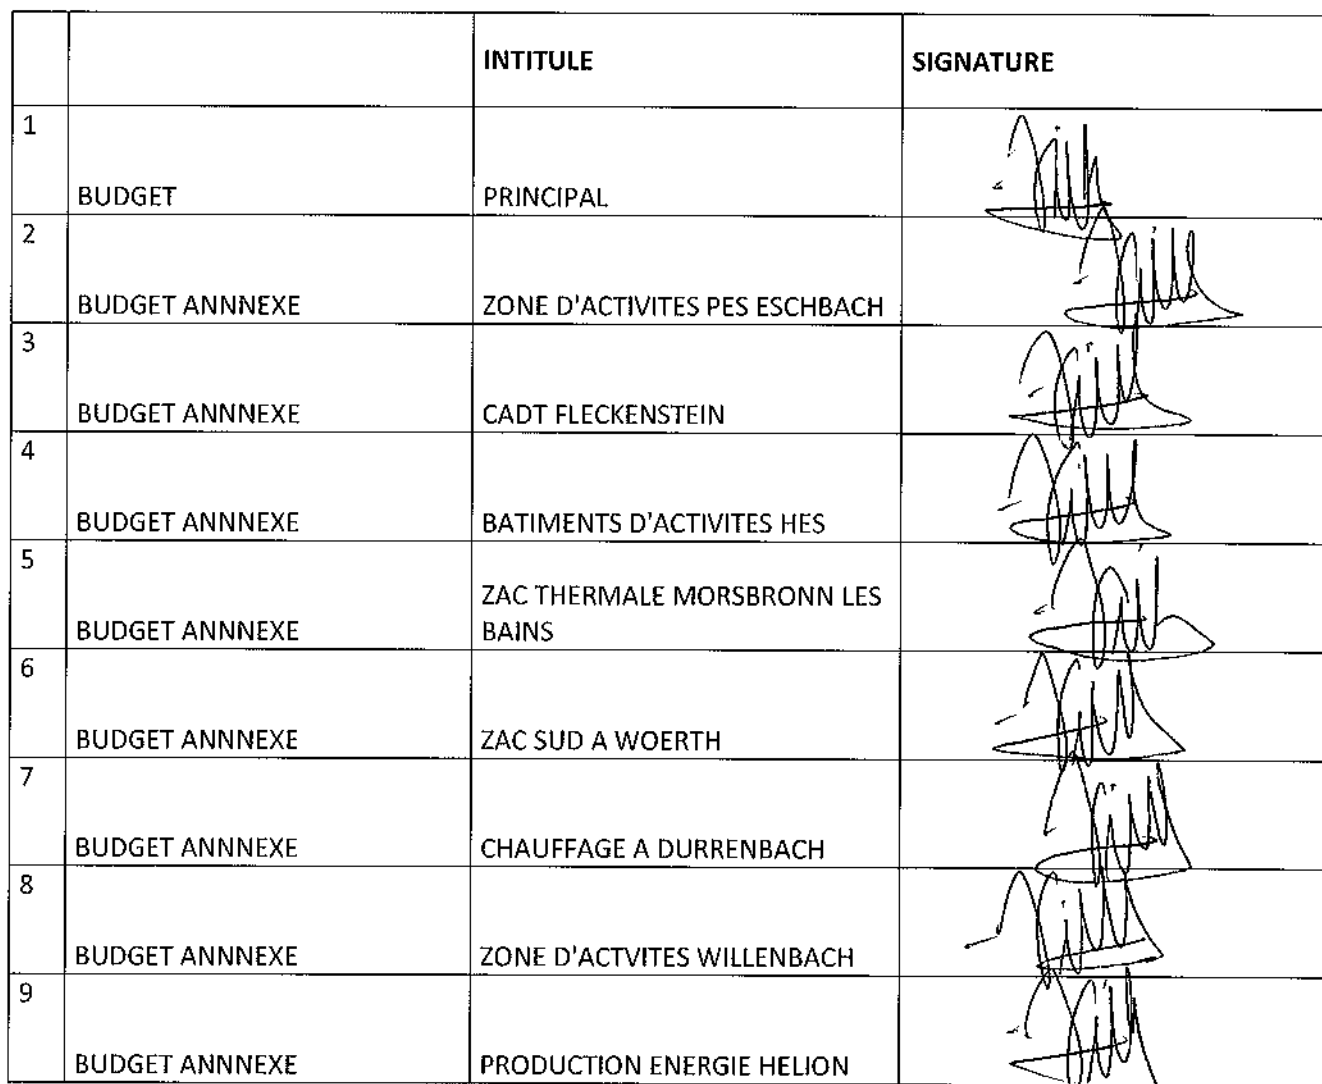 INTITULE SIGNATURE
1
BUDGET PRINCIPAL
2
BUDGET ANNNEXE ZONE D'ACTIVITES PES ESCHBACH
3
BUDGET ANNNEXE CADT FLECKENSTEIN
4
BUDGET ANNNEXE BATIMENTS D'ACTIVITES HES
5
ZAC THERMALE MORSBRONN LES
BUDGET ANNNEXE BAINS
6
BUDGET ANNNEXE ZAC SUD A WOERTH
7
BUDGET ANNNEXE CHAUFFAGE A DURRENBACH
8
BUDGET ANNNEXE ZONE D'ACTVITES WILLENBACH
9
BUDGET ANNNEXE PRODUCTION ENERGIE HELION